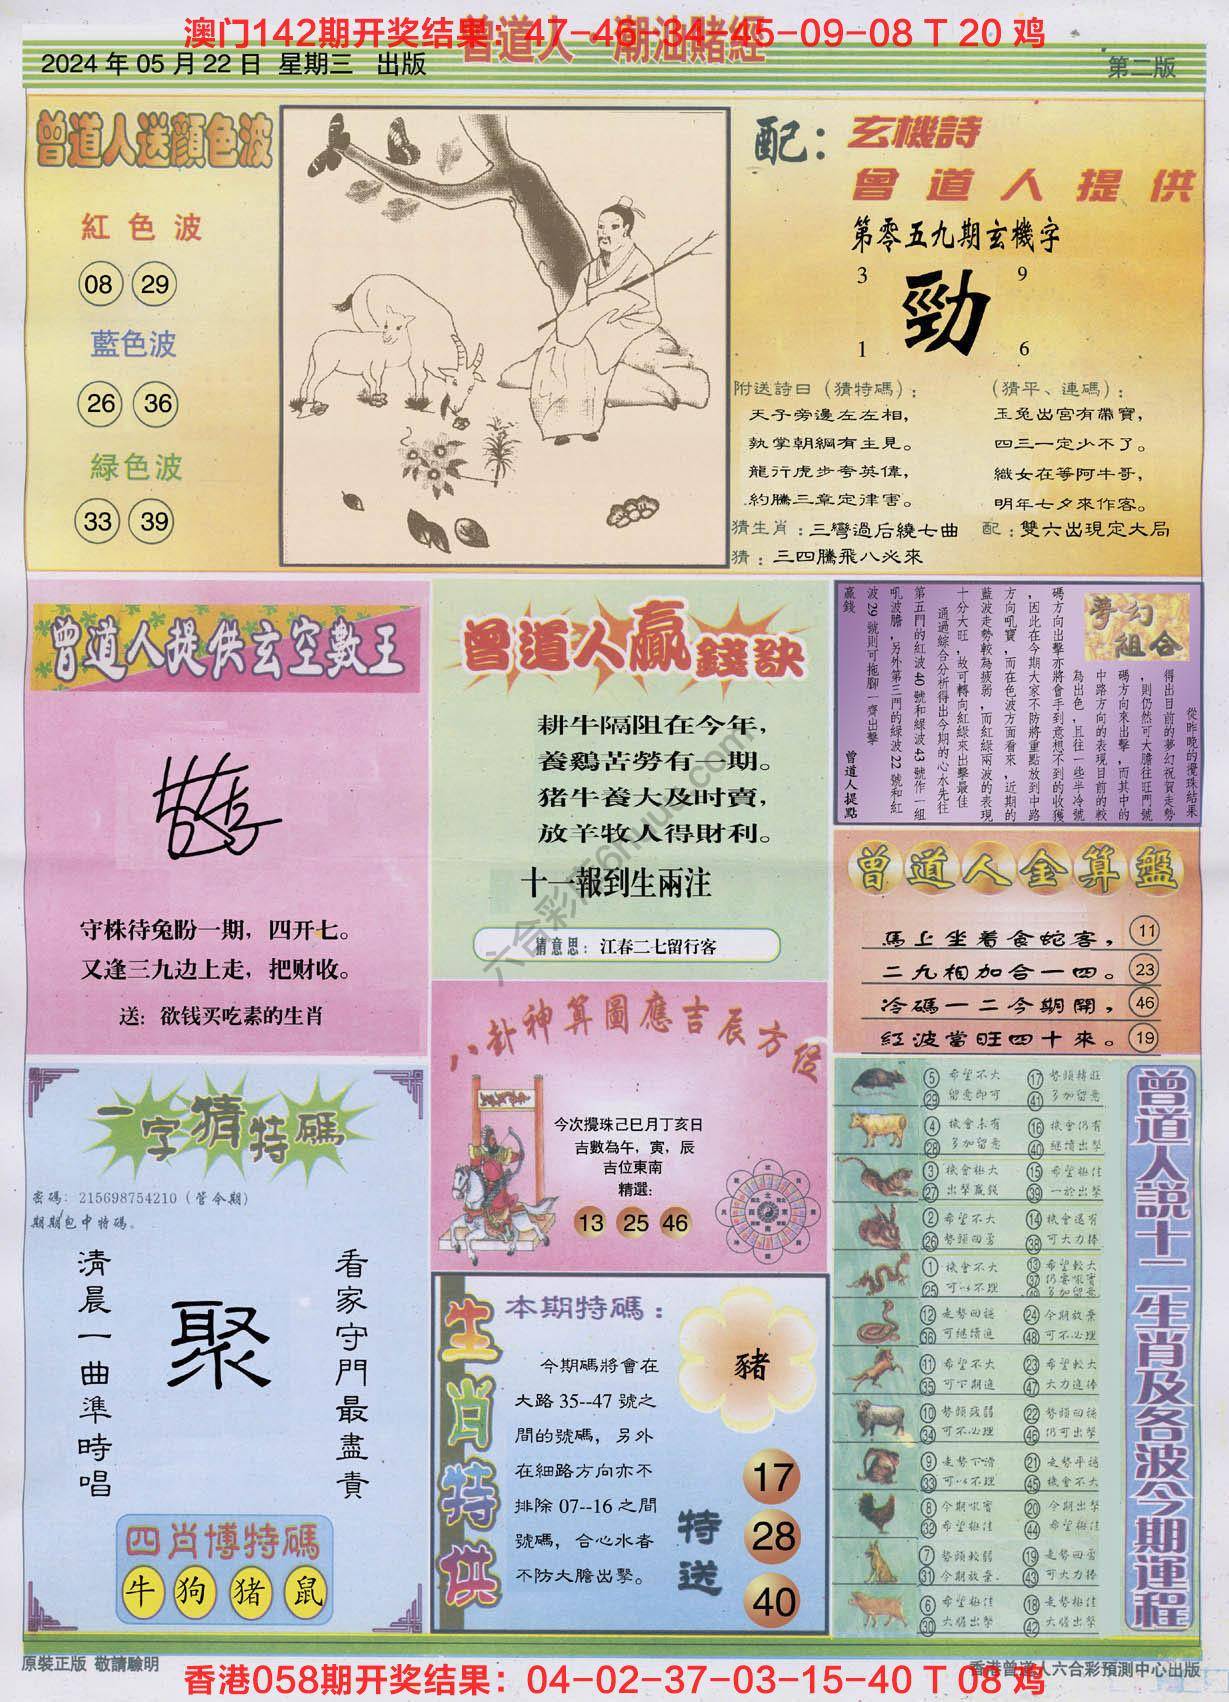 澳门142期开奖结果：47-46-34-45-09-08 T 20 鸡
曾道人 潮汕賭經
2024 年 05 月 22 日 星期三 出版
第二版
曾道人送顏色波
紅色波
08 29
藍色波
26 36
緑色波
33 39
配：玄機詩
曾道人提供
第零五九期玄機字
3 9
勁
1 6
附送詩曰（猜特碼）：
天子旁邊左左相，
執掌朝綱有主見。
龍行虎步夸英偉，
約騰三章定律害。
猜生肖：三彎過后繞七曲
猜：三四騰飛八必來
（猜平、連碼）：
玉兔出宮有帶寶，
四三一定少不了。
織女在等阿牛哥，
明年七夕來作客。
配：雙六出現定大局
曾道人提供玄空數王
守株待兔盼一期，四开七。
又逢三九边上走，把财收。
送：欲钱买吃素的生肖
曾道人贏錢訣
耕牛隔阻在今年，
養鷄苦勞有一期。
猪牛養大及时賣，
放羊牧人得財利。
十一報到生兩注
猜意思：江春二七留行客
夢幻組合
從昨晚的攪珠結果
得出目前的夢幻祝賀走勢
，則仍然可大膽往旺門號
碼方向來出擊，而其中的
中路方向的表現目前的較
為出色，且往一些半冷號
碼方向出擊亦將會手到意想不到的收獲
，因此在今期大家不防將重點放到中路
方向吼寶，而在色波方面看來，近期的
藍波走勢較為疲弱，而紅綠兩波的表現
十分大旺，故可轉向紅綠來出擊最佳
通過綜合分析得出今期的心水先往
第五門的紅波 40 號和緑波 43 號作一組
吼波膽，另外第三門的綠波 22 號和紅
波 29 號則可拖腳一齊出擊
贏錢
曾道人提點
曾道人金算盤
馬上坐着食蛇客， 11
二九相加合一四。 23
冷碼一二今期開， 46
紅波當旺四十來。 19
一字猜特碼
密碼：215698754210（管今期）
期期包中特碼。
清晨一曲準時唱
聚
看家守門最盡責
四肖博特碼
牛 狗 猪 鼠
八卦神算圖應吉辰方位
今次攪珠己巳月丁亥日
吉數為午，寅，辰
吉位東南
精選：
13 25 46
生肖特供
本期特碼：
今期碼將會在
大路 35--47 號之
間的號碼，另外
在細路方向亦不
排除 07--16 之間
號碼，合心水者
不防大膽出擊。
豬
特送
17
28
40
曾道人説十二生肖及各波今期運程
5 希望不大 17 勢頭轉旺
29 留意即可 41 多加留意
4 機會未有 16 機會仍有
28 多加留意 40 繼續出擊
3 機會極大 15 希望極佳
27 出擊贏錢 39 一於出擊
2 希望不大 14 機會還有
26 勢頭回勇 38 可大力捧
1 機會不大 13 希望較大
25 可以不理 37 仍要吼實
多加留意
12 走勢回穩 24 今期放棄
36 可繼續追 48 可不必理
11 希望不大 23 希望較大
35 可下期追 47 大力追捧
10 勢頭疲弱 22 勢頭回穩
34 可不必理 46 仍可出擊
9 走勢下滑 21 走勢平穩
33 可以不理 45 機會不大
8 今期吼實 20 今期出擊
32 希望極佳 44 希望極佳
7 勢頭較弱 19 走勢回勇
31 今期放棄 43 可大力捧
6 希望極佳 18 走勢極佳
30 大膽出擊 42 大膽出擊
六合彩库6huua.com
原裝正版 敬請驗明
香港058期开奖结果：04-02-37-03-15-40 T 08 鸡
香港曾道人六合彩預測中心出版